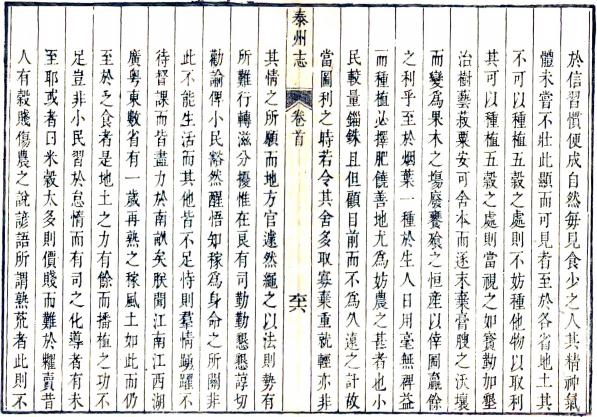 於信習慣便成自然每見食少之人其精神氣
體未嘗不壯此顯而可見者至於各省地土其
不可以種植五穀之處則不妨種他物以取利
其可以種植五穀之處則當視之如寶勤加墾
治樹藝菽粟安可舍本而逐末棄膏腴之沃壤
而變為果木之塲廢饔飧之恒産以倖圖贏餘
之利乎至於烟葉一種於生人日用毫無裨益
而種植必擇肥饒善地尤為妨農之甚者也小
民較量錙銖且但顧目前而不為久遠之計故
當圖利之時若令其舍多取寡棄重就輕亦非
泰州志
卷首
其情之所願而地方官遽然繩之以法則勢有
所難行轉滋分擾惟在良有司勤勤懇懇諄切
勸諭俾小民豁然醒悟知稼為身命之所關非
此不能生活而其他皆不足恃則羣情踴躍不
待督課而皆盡力於南畝矣朕聞江南江西湖
廣粤東數省有一歲再熟之稼風土如此而仍
至於乏食者是地土之力有餘而播植之功不
足豈非小民習於怠惰而有司之化導者有未
至耶或者曰米穀太多則價賤而難於糶賣昔
人有穀賤傷農之說諺語所謂熟荒者此則不